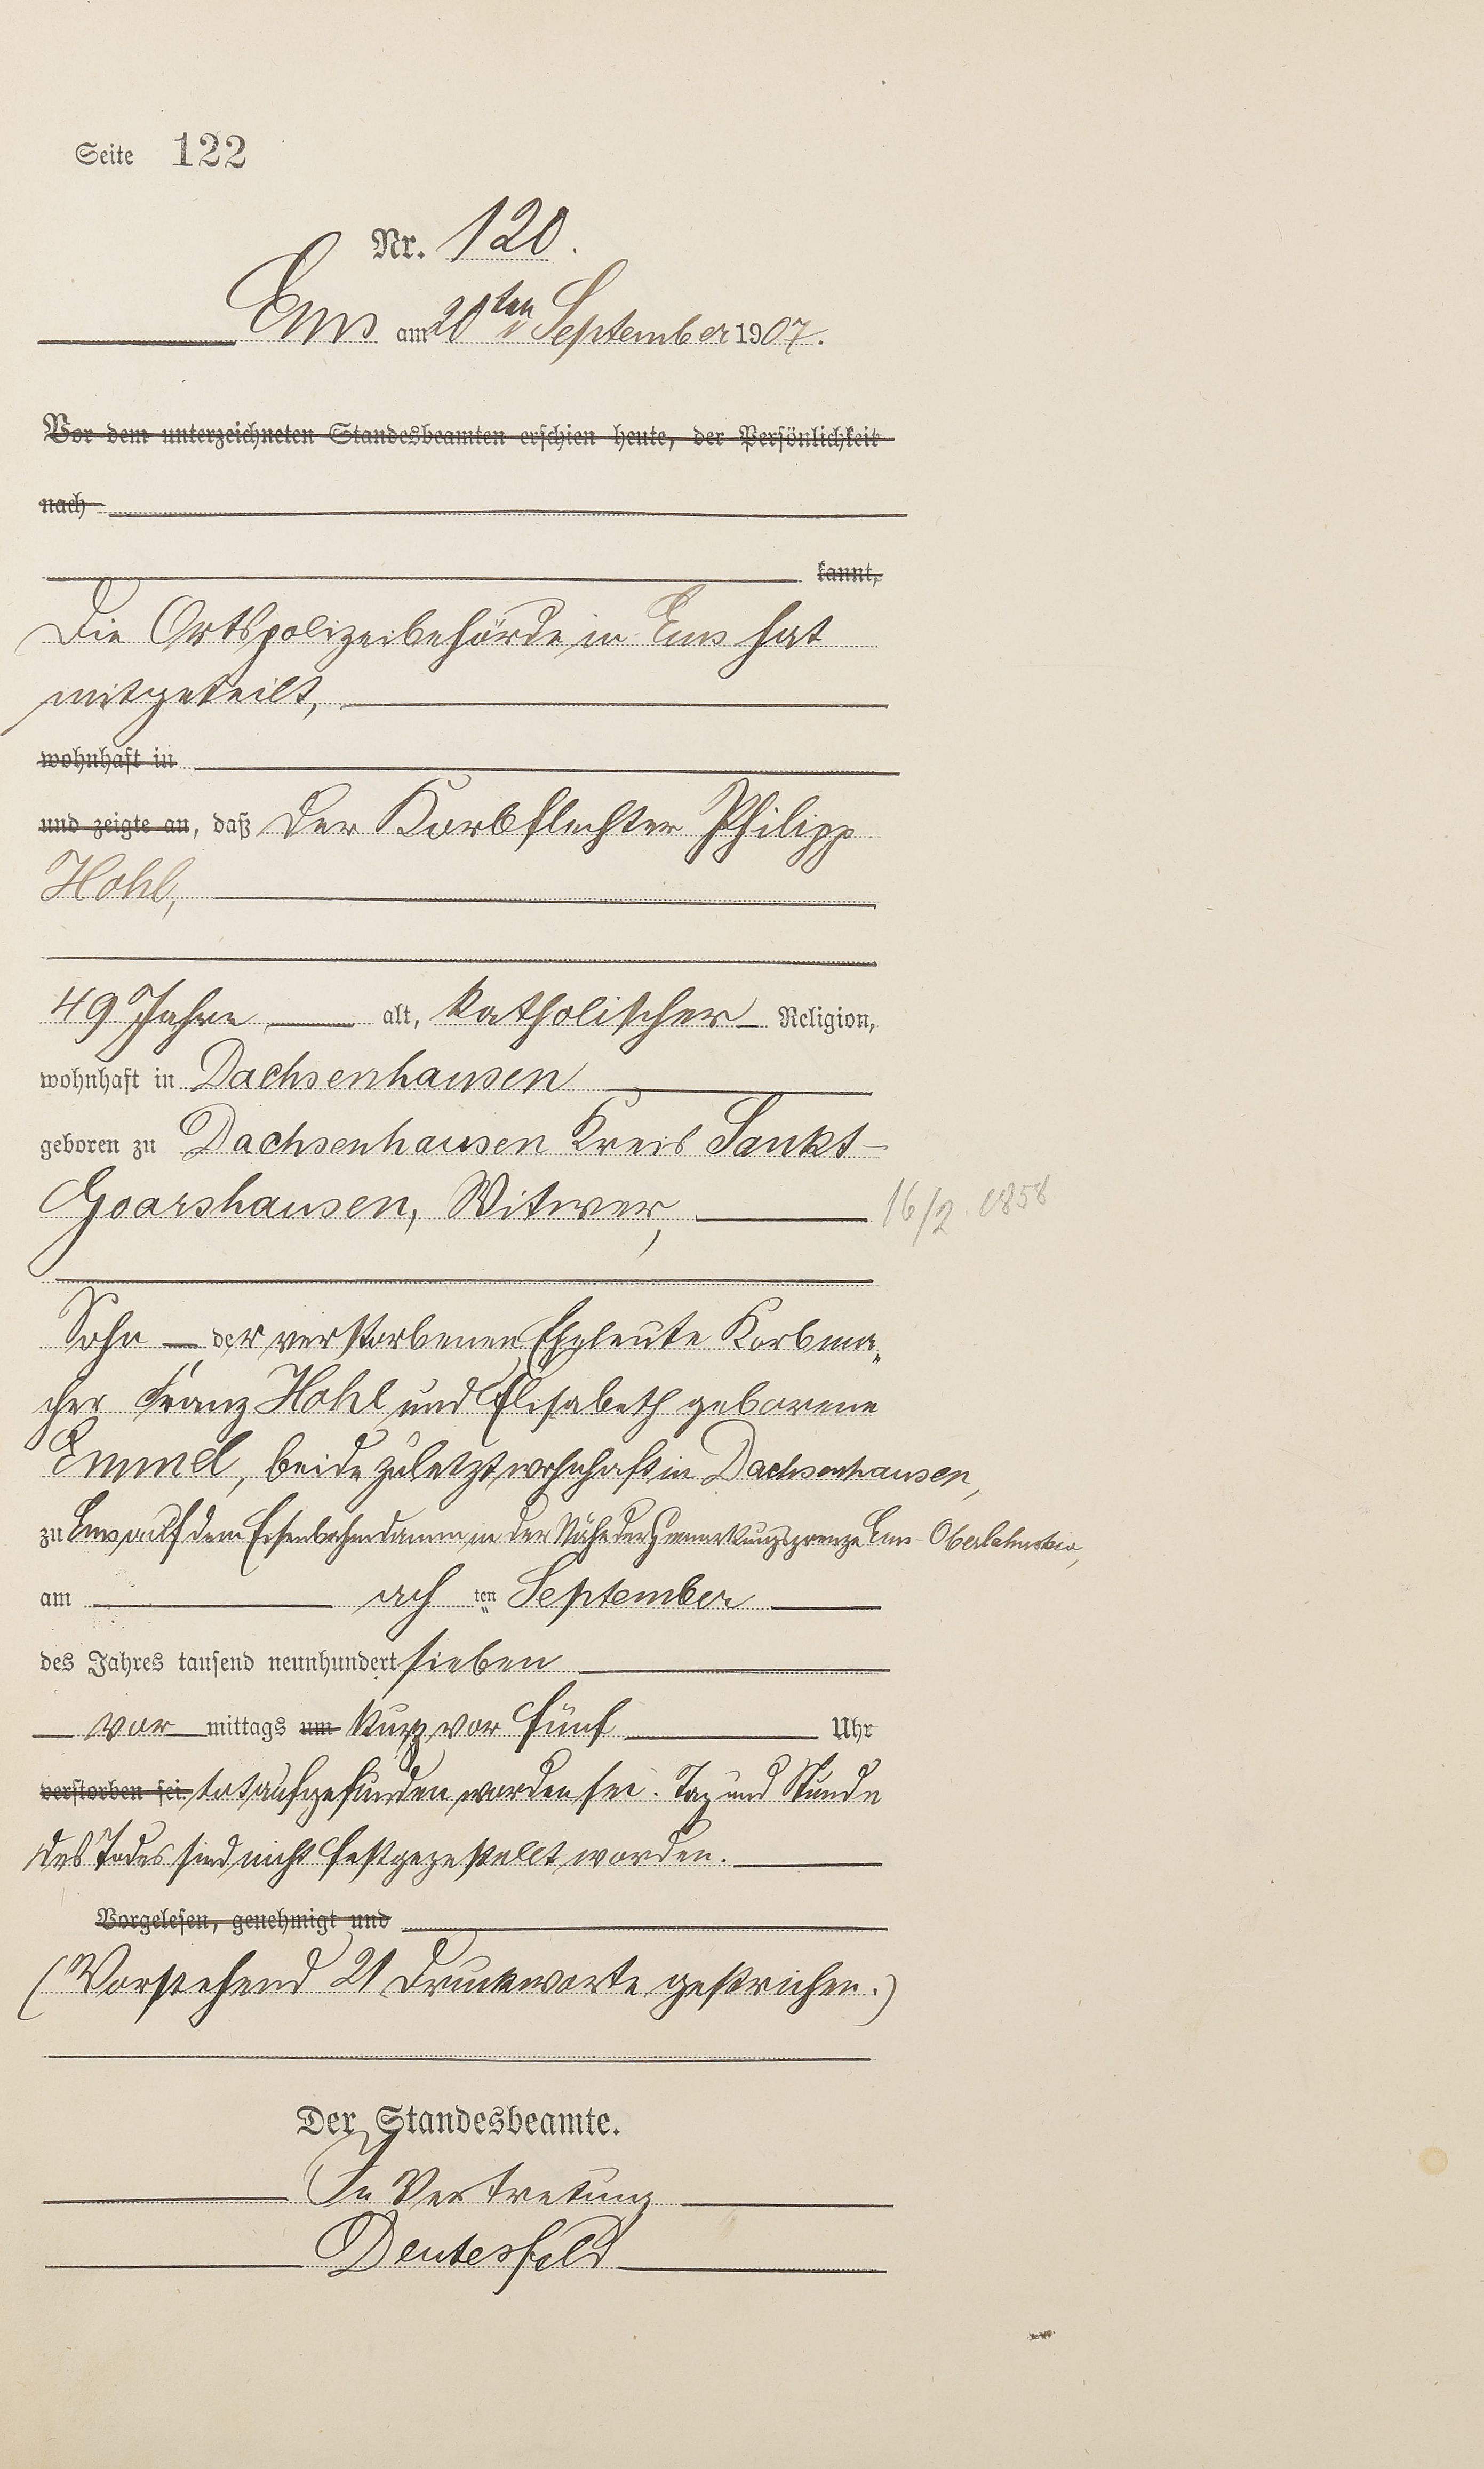 Seite 122
Nr. 120.
Ems am 20ten September 1907.
Vor dem unterzeichneten Standesbeamten erschien heute, der Persönlichkeit
nach
kannt,
Die Ortspolizeibehörde in Ems hat
mitgeteilt,
wohnhaft in
und zeigte an, daß der Korbflechter Philipp
Hohl,
49 Jahre alt, katholischer Religion,
wohnhaft in Dachsenhausen
geboren zu Dachsenhausen Kreis Sankt-
Goarshausen, Witwer,
16/2. 1858
Sohn der verstorbenen Eheleute Korbma„
cher Franz Hohl und Elisabeth geborene
Emmel, beide zuletzt wohnhaft in Dachsenhausen,
zu Ems auf dem Eisenbahndamm in der Nähe der Gemarkungsgrenze Ems-Oberlahnstein,
am ach ten September
des Jahres tausend neunhundert sieben
vor mittags um kurz vor fünf Uhr
verstorben sei. tot aufgefunden worden sei. Tag und Stunde
des Todes sind nicht festgegestellt worden.
Vorgelesen, genehmigt und
(Vorstehend 21 Druckworte gestrichen.)
Der Standesbeamte.
In Vertretung
Deutesfeld